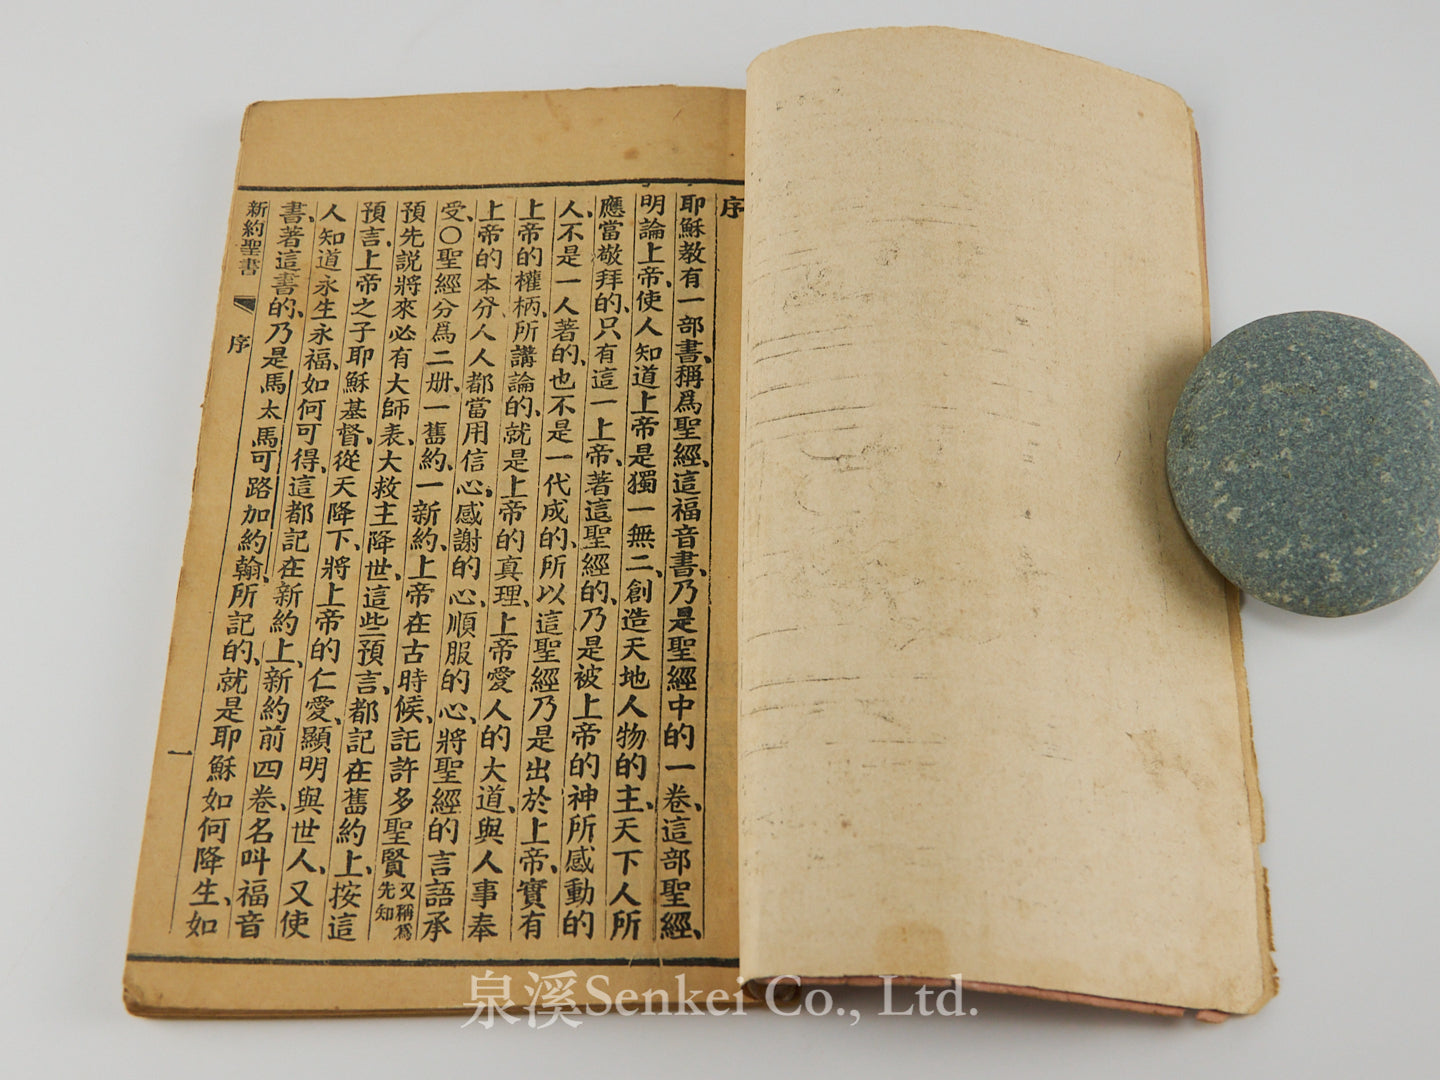 序
耶穌教有一部書、稱爲聖經、這福音書、乃是聖經中的一卷、這部聖經、
明論上帝、使人知道上帝是獨一無二、創造天地人物的主、天下人所
應當敬拜的、只有這一上帝、著這聖經的、乃是被上帝的神所感動的
人、不是一人著的、也不是一代成的、所以這聖經乃是出於上帝、實有
上帝的權柄、所講論的、就是上帝的真理、上帝愛人的大道、與人事奉
上帝的本分、人人都當用信心、感謝的心、順服的心、將聖經的言語承
受、〇聖經分爲二册、一舊約、一新約、上帝在古時候、託許多聖賢又稱爲先知
預先說將來必有大師表、大救主降世、這些預言、都記在舊約上、按這
預言、上帝之子耶穌基督、從天降下、將上帝的仁愛、顯明與世人、又使
人知道永生永福、如何可得、這都記在新約上、新約前四卷、名叫福音
書、著這書的、乃是馬太馬可路加約翰、所記的、就是耶穌如何降生、如
新約聖書 序 一
泉溪Senkei Co., Ltd.